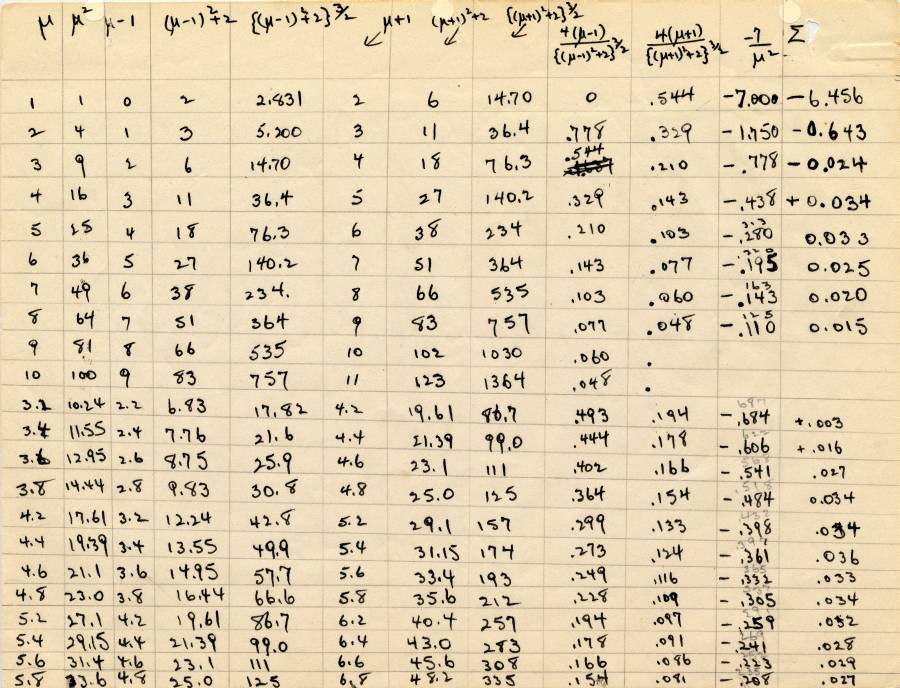 μ μ² μ-1 (μ-1)²+2 {(μ-1)²+2}^3/2 μ+1 (μ+1)²+2 {(μ+1)²+2}^3/2 4(μ-1)/{(μ-1)²+2}^3/2 4(μ+1)/{(μ+1)²+2}^3/2 -7/μ² Σ
1 1 0 2 2.831 2 6 14.70 0 .544 -7.000 -6.456
2 4 1 3 5.200 3 11 36.4 .778 .329 -1.750 -0.643
3 9 2 6 14.70 4 18 76.3 .544 .210 -.778 -0.024
4 16 3 11 36.4 5 27 140.2 .329 .143 -.438 +0.034
5 25 4 18 76.3 6 38 234 .210 .103 -.280 0.033
6 36 5 27 140.2 7 51 364 .143 .077 -.195 0.025
7 49 6 38 234. 8 66 535 .103 .060 -.143 0.020
8 64 7 51 364 9 83 757 .077 .048 -.110 0.015
9 81 8 66 535 10 102 1030 .060 .
10 100 9 83 757 11 123 1364 .048 .
3.2 10.24 2.2 6.83 17.82 4.2 19.61 86.7 .493 .194 -.684 +.003
3.4 11.55 2.4 7.76 21.6 4.4 21.39 99.0 .444 .178 -.606 +.016
3.6 12.95 2.6 8.75 25.9 4.6 23.1 111 .402 .166 -.541 .027
3.8 14.44 2.8 9.83 30.8 4.8 25.0 125 .364 .154 -.484 0.034
4.2 17.61 3.2 12.24 42.8 5.2 29.1 157 .299 .133 -.398 .034
4.4 19.39 3.4 13.55 49.9 5.4 31.15 174 .273 .124 -.361 .036
4.6 21.1 3.6 14.95 57.7 5.6 33.4 193 .249 .116 -.332 .033
4.8 23.0 3.8 16.44 66.6 5.8 35.6 212 .228 .109 -.305 .034
5.2 27.1 4.2 19.61 86.7 6.2 40.4 257 .194 .097 -.259 .032
5.4 29.15 4.4 21.39 99.0 6.4 43.0 283 .178 .091 -.241 .028
5.6 31.4 4.6 23.1 111 6.6 45.6 308 .166 .086 -.223 .029
5.8 33.6 4.8 25.0 125 6.8 48.2 335 .154 .081 -.208 .027